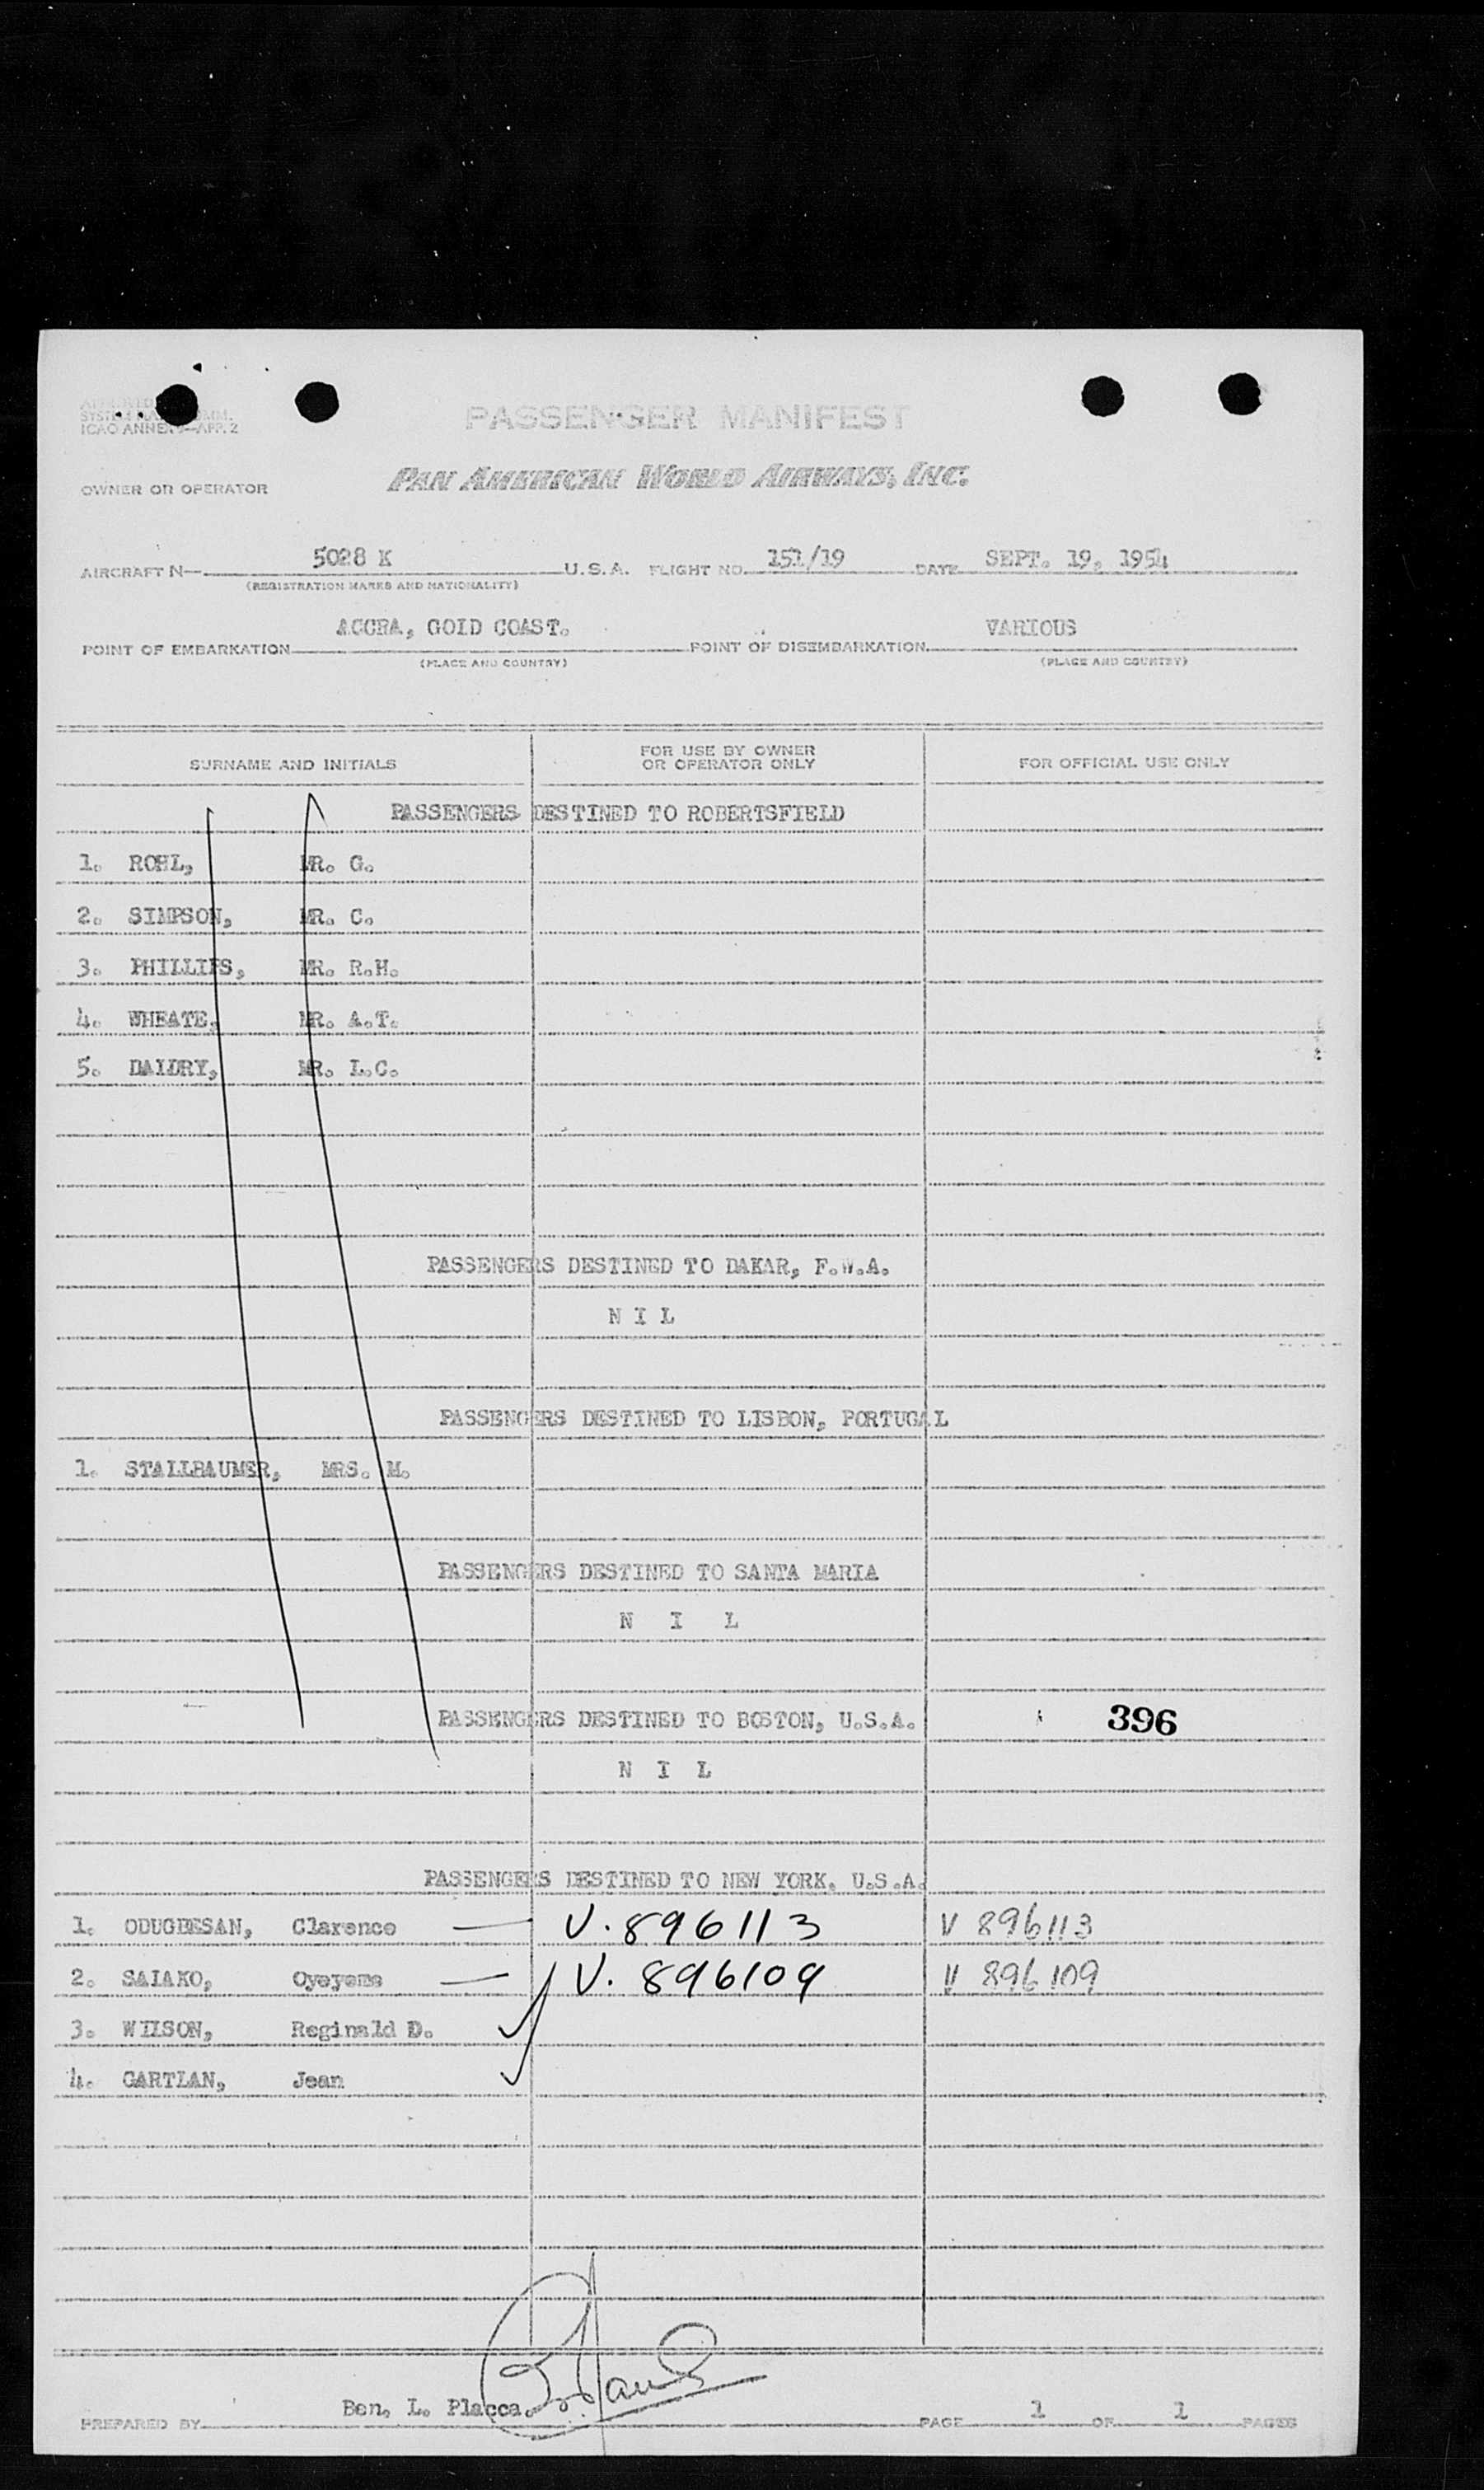 PASSENGER MANIFEST
ICAO ANNEX 9—APP. 2
OWNER OR OPERATOR PAN AMERICAN WORLD AIRWAYS, INC.
AIRCRAFT N— 5028 K U.S.A. FLIGHT NO. 151/19 DATE SEPT. 19, 1954
(REGISTRATION MARKS AND NATIONALITY)
POINT OF EMBARKATION ACCRA, GOLD COAST. POINT OF DISEMBARKATION VARIOUS
(PLACE AND COUNTRY) (PLACE AND COUNTRY)
SURNAME AND INITIALS FOR USE BY OWNER OR OPERATOR ONLY FOR OFFICIAL USE ONLY
PASSENGERS DESTINED TO ROBERTSFIELD
1. ROHL, MR. G.
2. SIMPSON, MR. C.
3. PHILLIPS, MR. R.H.
4. WHEATE, MR. A.T.
5. DALDRY, MR. L.C.
PASSENGERS DESTINED TO DAKAR, F.W.A.
N I L
PASSENGERS DESTINED TO LISBON, PORTUGAL
1. STALLBAUMER, MRS. M.
PASSENGERS DESTINED TO SANTA MARIA
N I L
PASSENGERS DESTINED TO BOSTON, U.S.A. 396
N I L
PASSENGERS DESTINED TO NEW YORK, U.S.A.
1. ODUGBESAN, Clarence — V. 896113 V 896113
2. SALAKO, Oyeyema — V. 896109 V 896109
3. WILSON, Reginald D.
4. GARTLAN, Jean
PREPARED BY Ben. L. Placca. PAGE 1 OF 1 PAGES